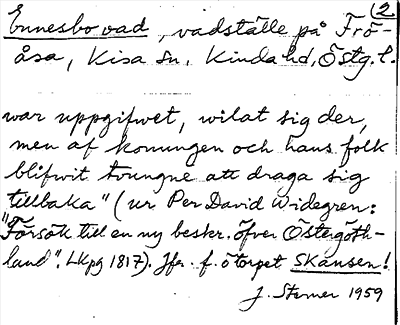 (2
Ennesbo vad, vadställe på Frö-
åsa, Kisa sn, Kinda hd, Östg. l.
war uppgifwet, wilat sig der,
men af konungen och hans folk
blifwit tvungne att draga sig
tillbaka" (ur Per David Widegren:
"Försök till en ny beskr. öfver Östergöth-
land". Lkpg 1817). Jfr. f. ö torpet Skansen!
J. Sterner 1959